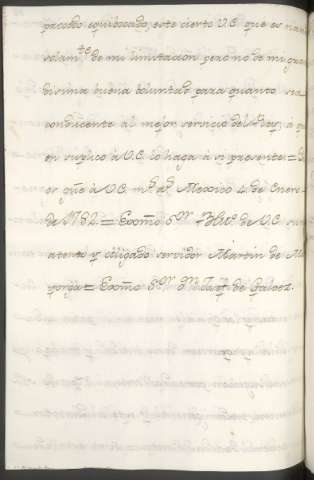 procedo equibocado, este cierto V.E. que es na
solam.te de mi limitacion pero no de mi gran
disima buena boluntad para quanto sea
conducente al mejor servicio del Rey; à q
en suplico à V.E. lo haga à si presente =
or gũe à V.E. m.s a.s Mexico 4 de Enero
de 1782 = Exc̃mo S.or = de V.E. su
atento y obligado servidor Martin de Ma
yorga = Exc̃mo S.or D.n Josef de Galvez.